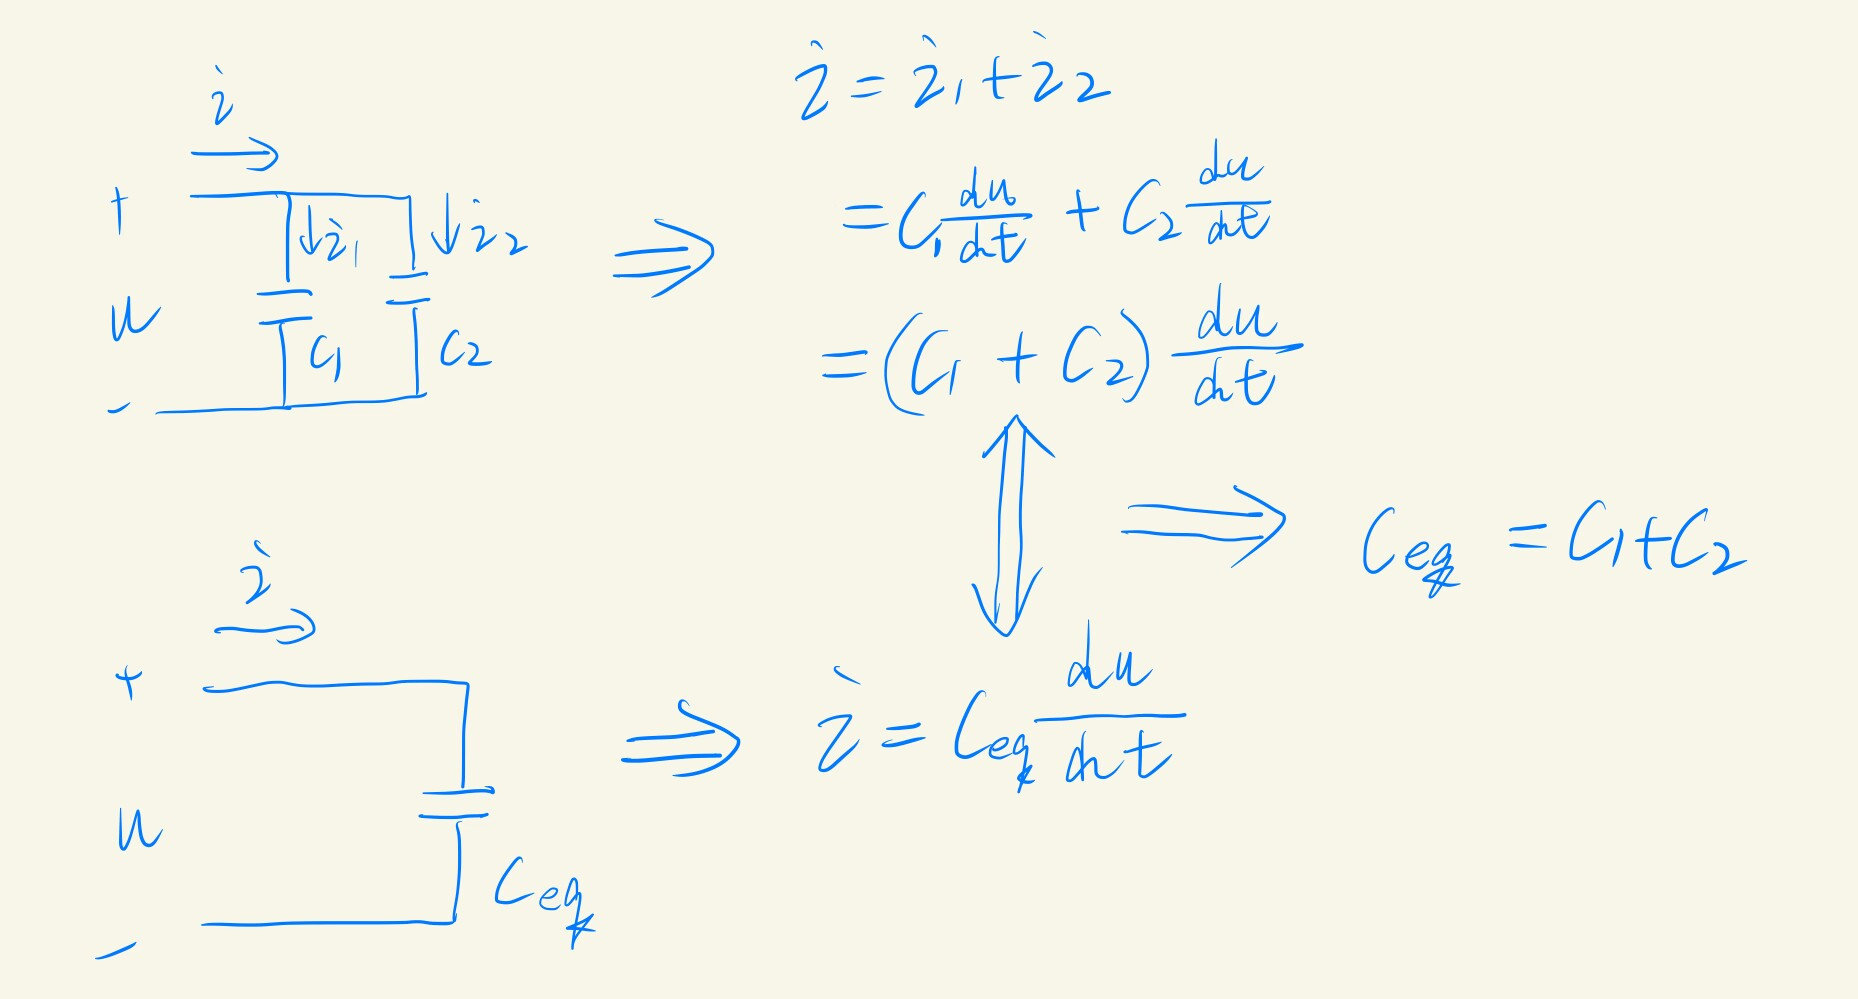 i
+
u
-
i1
i2
C1
C2
⇒
i = i1 + i2
= C1 du/dt + C2 du/dt
= (C1 + C2) du/dt
⇒ Ceq = C1 + C2
i
+
u
-
Ceq
⇒ i = Ceq du/dt